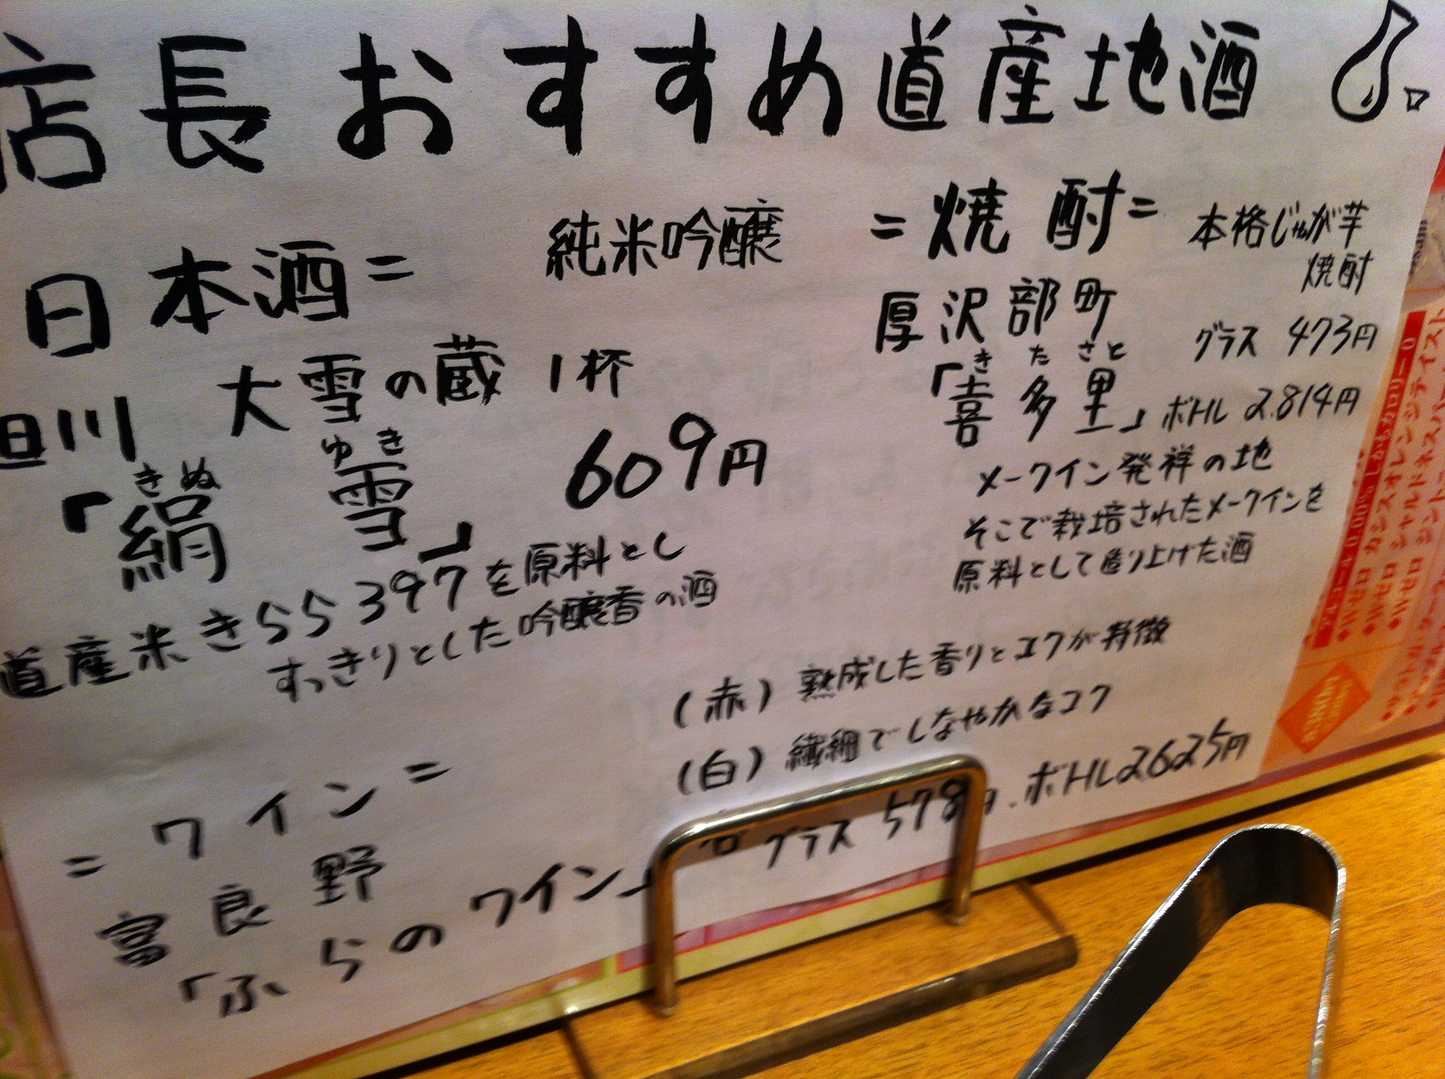 店長おすすめ道産地酒
日本酒＝
純米吟醸
旭川 大雪の蔵 1杯
きぬ ゆき
「絹 雪」 609円
道産米きらら397を原料とし
すっきりとした吟醸香の酒
＝焼酎＝
本格じゃが芋
焼酎
厚沢部町
グラス 473円
きたさと
「喜多里」ボトル 2.814円
メークイン発祥の地
そこで栽培されたメークインを
原料として造り上げた酒
＝ワイン＝
富良野
「ふらのワイン」
(赤) 熟成した香りとコクが特徴
(白) 繊細でしなやかなコク
グラス 578円、ボトル2625円
しかもカロリー0
カシスオレンジテイスト